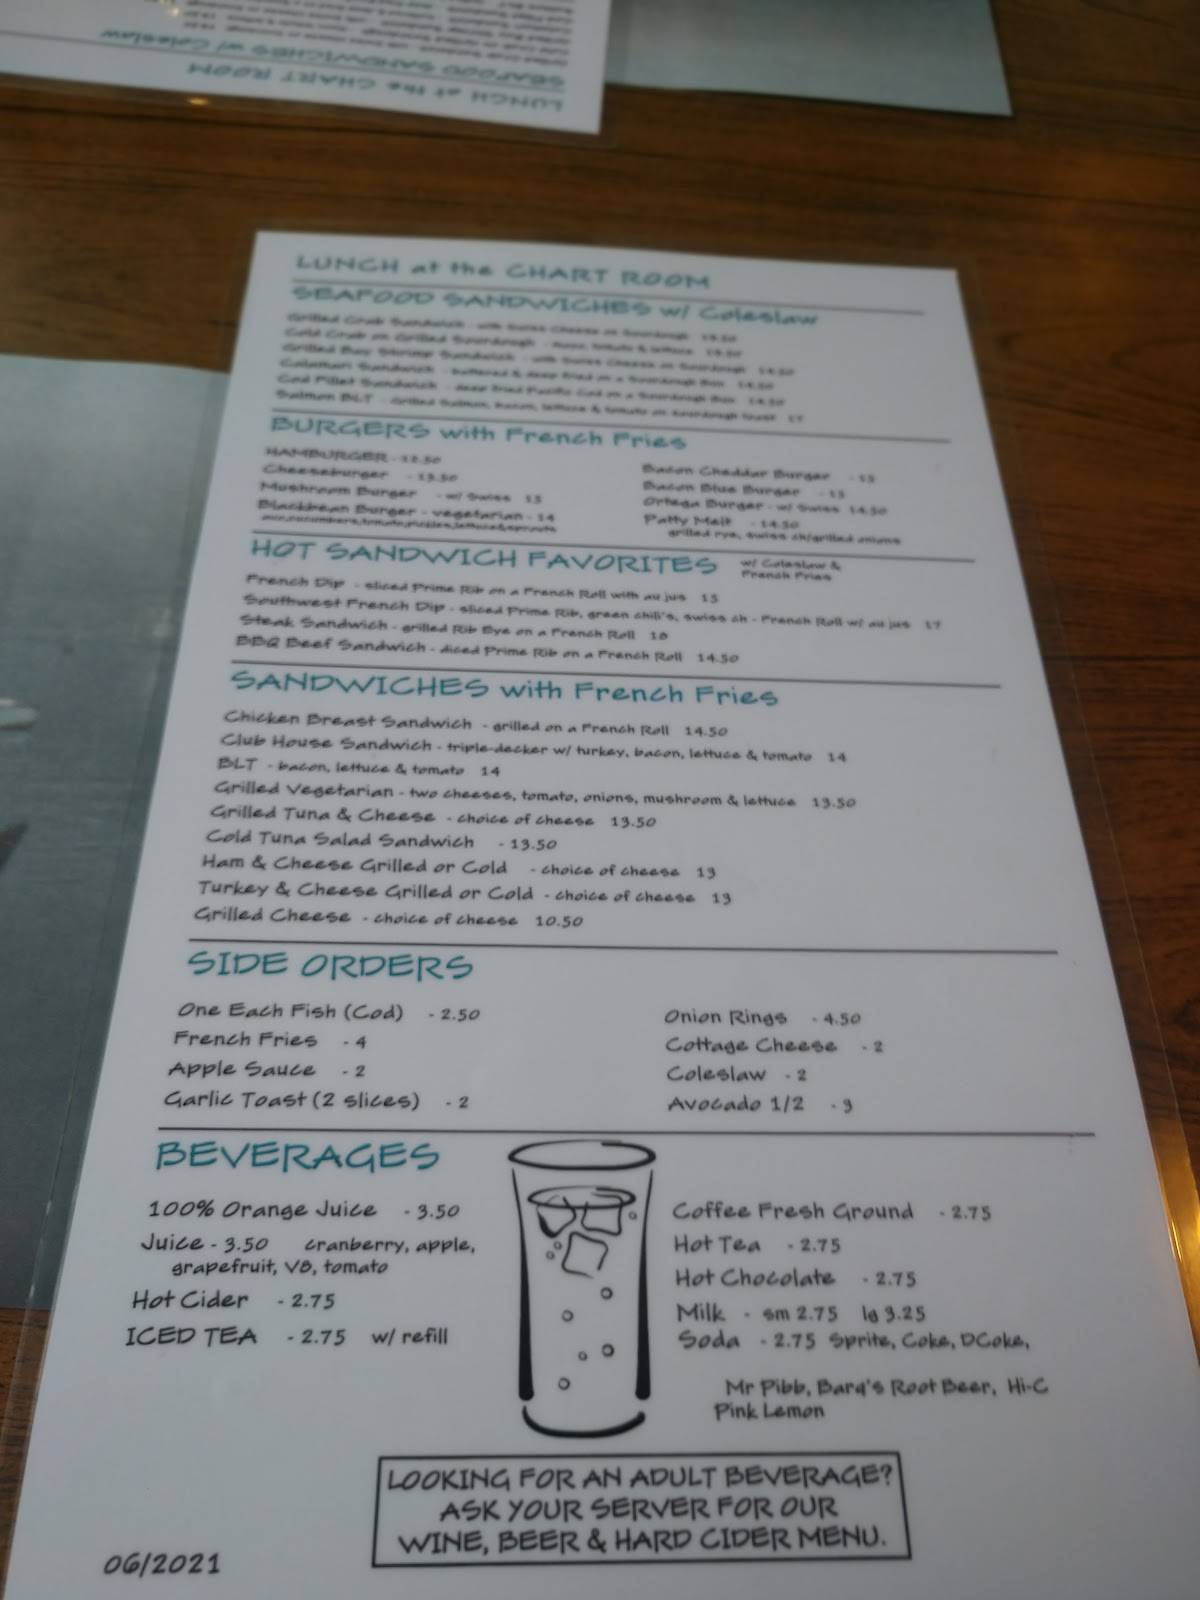 LUNCH at the CHART ROOM
SEAFOOD SANDWICHES w/ Coleslaw
LUNCH at the CHART ROOM
SEAFOOD SANDWICHES w/ Coleslaw
Grilled Crab Sandwich - with Swiss Cheese on Sourdough
Cold Crab on Grilled Sourdough - lettuce
Grilled Bay Shrimp Sandwich - with Swiss Cheese on Sourdough 14.50
Calamari Sandwich - battered & deep fried on a Sourdough Bun 14.50
Cod Fillet Sandwich - deep fried Pacific Cod on a Sourdough Bun 14.50
Salmon BLT - Grilled Salmon, bacon, lettuce & tomato on sourdough toast 17
BURGERS with French Fries
HAMBURGER - 12.50
Cheeseburger - 13.50
Mushroom Burger - w/ Swiss 15
Blackbean Burger - vegetarian - 14
cucumbers, tomato, pickles, lettuce & sprouts
Bacon Cheddar Burger - 15
Bacon Blue Burger - 15
Ortega Burger - w/ Swiss 14.50
Patty Melt - 14.50
grilled rye, swiss ch/grilled onions
HOT SANDWICH FAVORITES w/ Coleslaw &
French Fries
French Dip - sliced Prime Rib on a French Roll with au jus 15
Southwest French Dip - sliced Prime Rib, green chili's, swiss ch - French Roll w/ au jus 17
Steak Sandwich - grilled Rib Eye on a French Roll
BBQ Beef Sandwich - diced Prime Rib on a French Roll 14.50
SANDWICHES with French Fries
Chicken Breast Sandwich - grilled on a French Roll 14.50
Club House Sandwich - triple-decker w/ turkey, bacon, lettuce & tomato 14
BLT - bacon, lettuce & tomato 14
Grilled Vegetarian - two cheeses, tomato, onions, mushroom & lettuce 13.50
Grilled Tuna & Cheese - choice of cheese 13.50
Cold Tuna Salad Sandwich - 13.50
Ham & Cheese Grilled or Cold - choice of cheese 13
Turkey & Cheese Grilled or Cold - choice of cheese 13
Grilled Cheese - choice of cheese 10.50
SIDE ORDERS
One Each Fish (Cod) - 2.50
French Fries - 4
Apple Sauce - 2
Garlic Toast (2 slices) - 2
Onion Rings - 4.50
Cottage Cheese - 2
Coleslaw - 2
Avocado 1/2 - 3
BEVERAGES
100% Orange Juice - 3.50
Juice - 3.50 cranberry, apple,
grapefruit, V8, tomato
Hot Cider - 2.75
ICED TEA - 2.75 w/ refill
Coffee Fresh Ground - 2.75
Hot Tea - 2.75
Hot Chocolate - 2.75
Milk - sm 2.75 lg 3.25
Soda - 2.75 Sprite, Coke, DCoke,
Mr Pibb, Barq's Root Beer, Hi-C
Pink Lemon
LOOKING FOR AN ADULT BEVERAGE?
ASK YOUR SERVER FOR OUR
WINE, BEER & HARD CIDER MENU.
06/2021